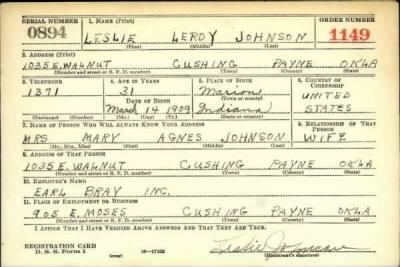 SERIAL NUMBER 1. NAME (Print) ORDER NUMBER
0894 LESLIE LEROY JOHNSON 1149
(First) (Middle) (Last)
2. ADDRESS (Print)
1035 E. WALNUT CUSHING PAYNE OKLA
(Number and street or R. F. D. number) (Town) (County) (State)
3. TELEPHONE 4. AGE IN YEARS 5. PLACE OF BIRTH 6. COUNTRY OF CITIZENSHIP
1371 31 Marion UNITED
DATE OF BIRTH (Town or county)
March 14 1909 Indiana STATES
(Exchange) (Number) (Mo.) (Day) (Yr.) (State or country)
7. NAME OF PERSON WHO WILL ALWAYS KNOW YOUR ADDRESS 8. RELATIONSHIP OF THAT PERSON
MRS MARY AGNES JOHNSON WIFE
(Mr., Mrs., Miss) (First) (Middle) (Last)
9. ADDRESS OF THAT PERSON
1035 E. WALNUT CUSHING PAYNE OKLA
(Number and street or R. F. D. number) (Town) (County) (State)
10. EMPLOYER'S NAME
EARL BRAY INC.
11. PLACE OF EMPLOYMENT OR BUSINESS
905 E. MOSES CUSHING PAYNE OKLA
(Number and street or R. F. D. number) (Town) (County) (State)
I AFFIRM THAT I HAVE VERIFIED ABOVE ANSWERS AND THAT THEY ARE TRUE.
REGISTRATION CARD
D. S. S. Form 1 (over) 16-17105 Leslie Johnson
(Registrant's signature)